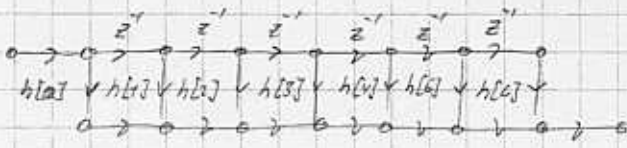 z⁻¹ z⁻¹ z⁻¹ z⁻¹ z⁻¹ z⁻¹
h[0] h[1] h[2] h[3] h[4] h[5] h[6]